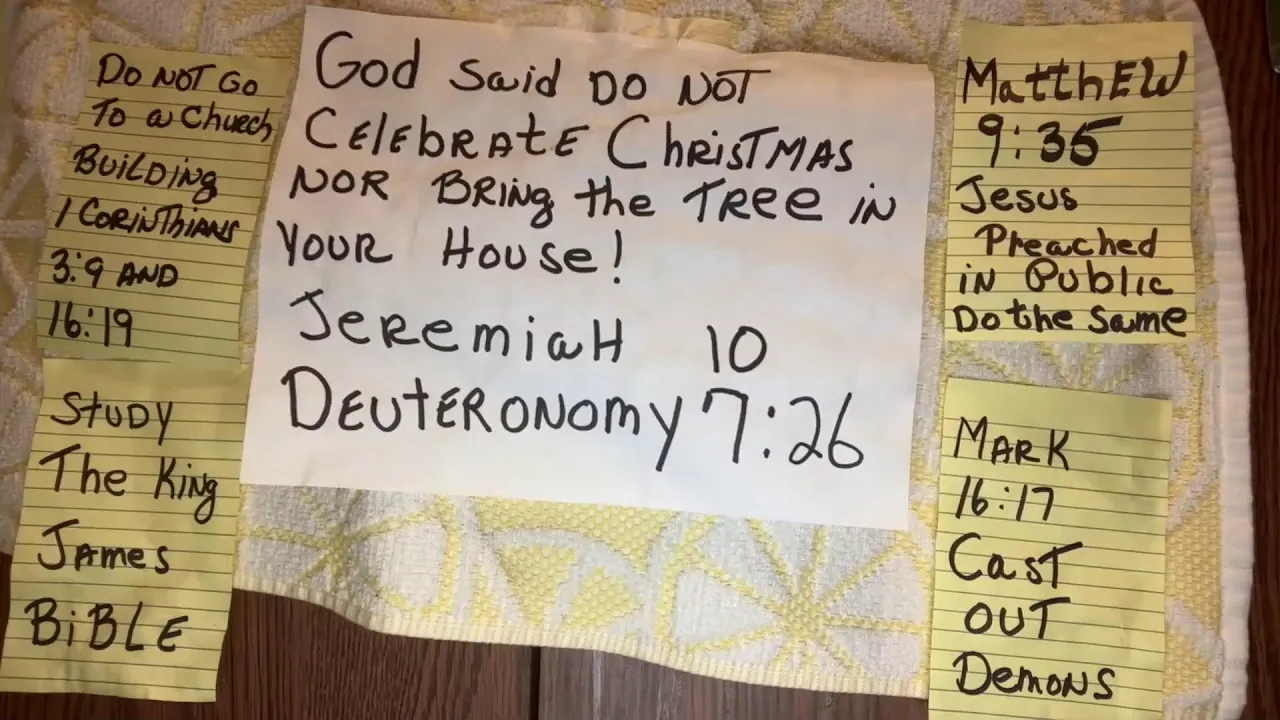 Do NOT GO
To a Church
BUILDING
1 CORINTHIANS
3:9 AND
16:19
STUDY
The KING
JAMES
BiBLE
God Said DO NOT
CELEBRATE ChRISTMAS
NOR BRING the TREE iN
YOUR HOUSE!
JEREMIAH 10
DEUTERONOMY 7:26
MatthEW
9:35
JESUS
Preached
iN Public
Do the Same
MARK
16:17
CAST
OUT
DEMONS